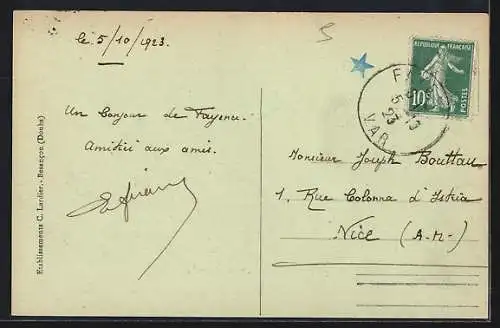 le 5/10/1923.
5
Un bonjour de Fayence.
Amitiés aux amis.
Etablissements C. Lardier. - Besançon (Doubs)
REPUBLIQUE FRANÇAISE
10c
POSTES
VAR
23
Monsieur Joseph Bouttau
1, Rue Colonna d'Istria
Nice (A.-M-)